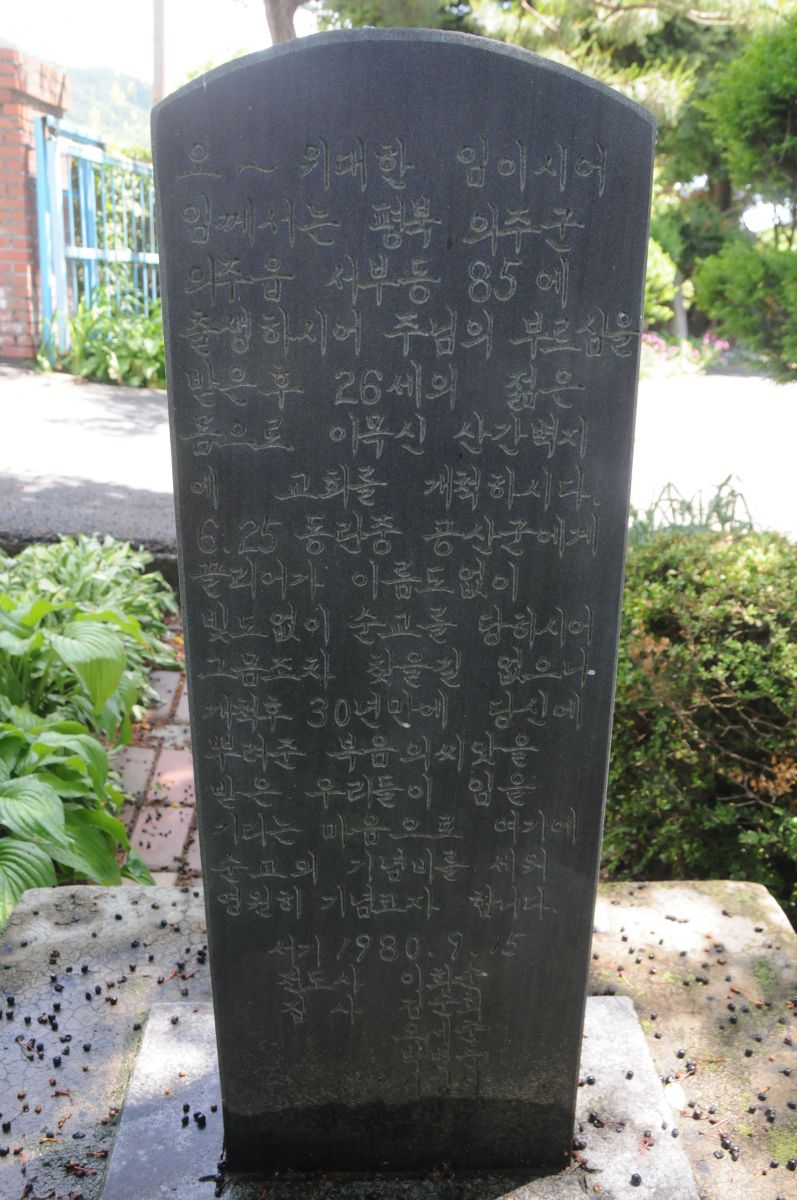 오~ 위대한 임이시어
임께서는 평북 의주군
의주읍 서부동 85에
출생하시어 주님의 부르심을
받은후 26세의 젊은
몸으로 이곳신 산간벽지
에 교회를 개척하시다.
6.25 동란중 공산군에게
끌리어가 이름도없이
빛도없이 순교를 당하시어
그금조차 찾을길 없으니
개척후 30년만에 당신에
뿌려준 복음의씨앗을
받은 우리들이 임을
기리는 마음으로 여기에
순교의 기념비를 세워
영원히 기념코자 합니다.
서기 1980.9.15
전도사
집사